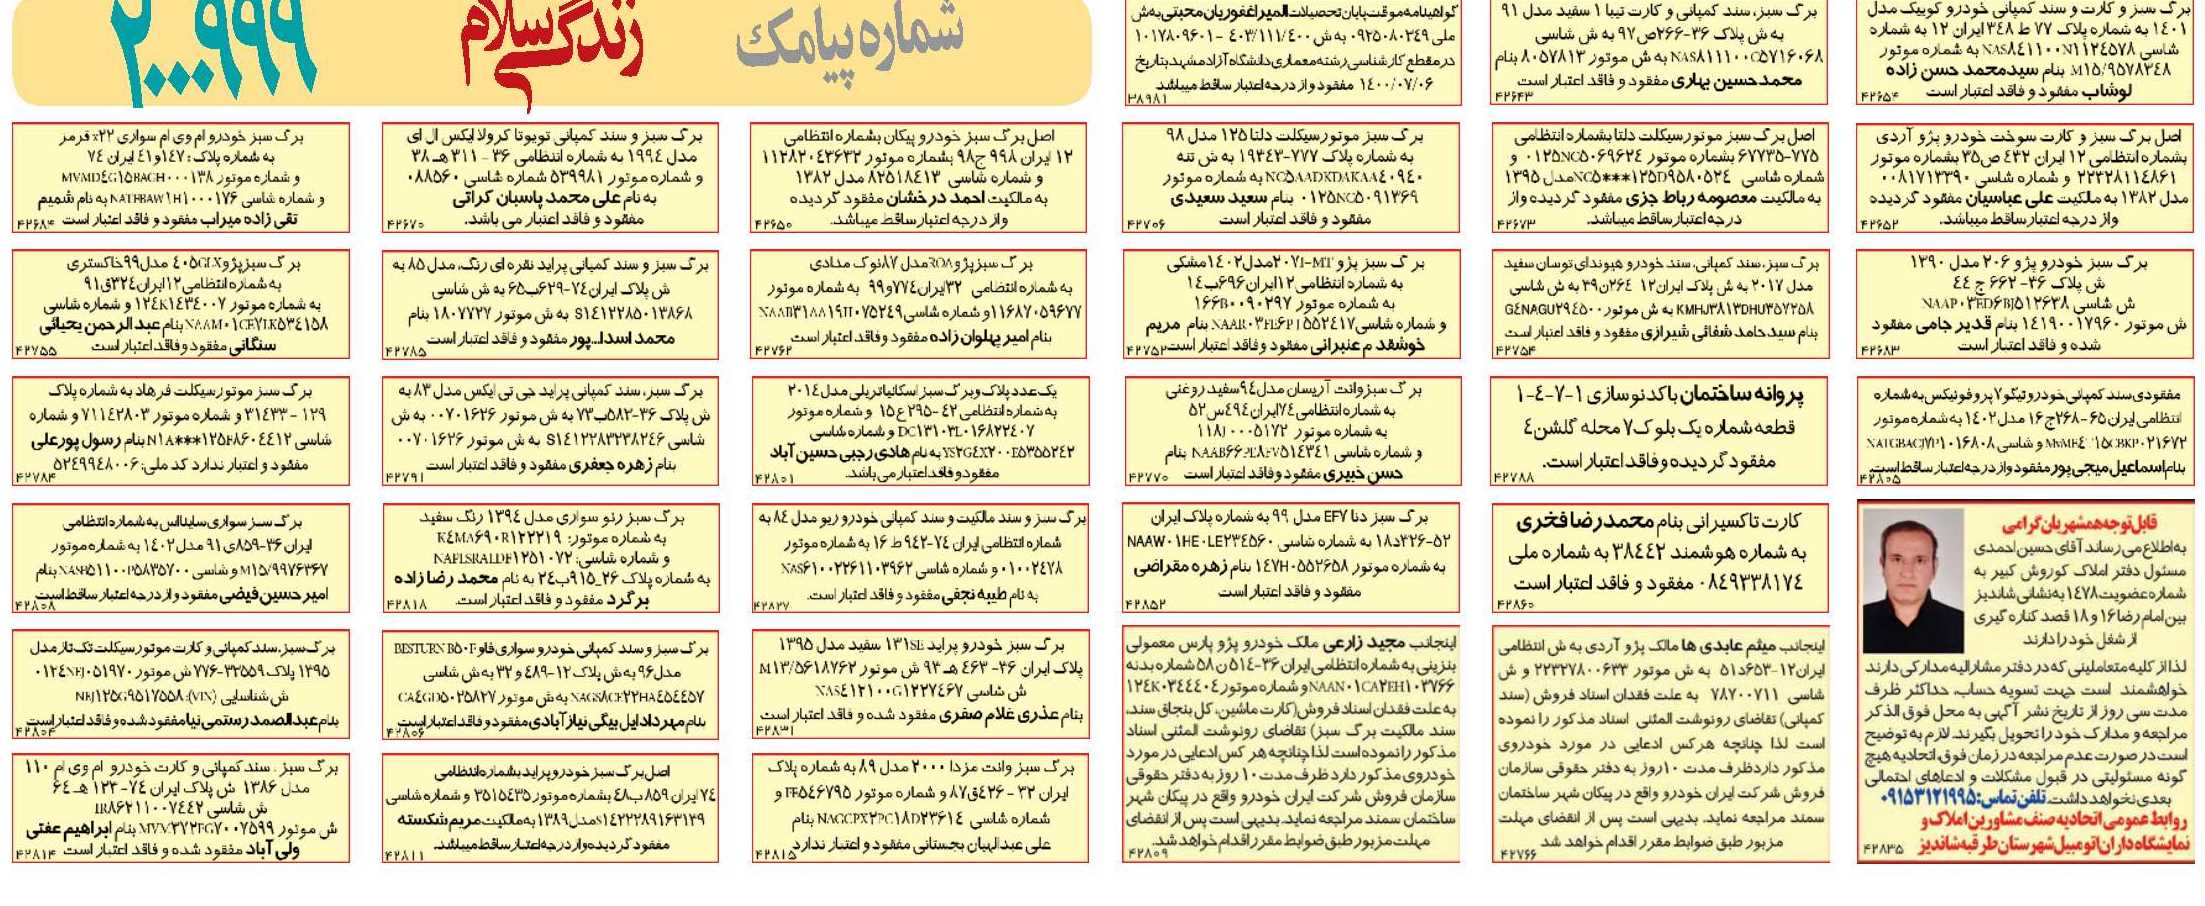 برگ سبز و کارت و سند کمپانی خودرو کوییک مدل
۱۴۰۱ به شماره پلاک ۷۷ ط ۳۴۸ ایران ۱۲ به شماره
شاسی NAS۸۴۱۱۰۰N۱۱۲۴۵۷۸ به شماره موتور
M۱۵/۹۵۷۸۳۴۸ بنام سیدمحمد حسن زاده
لوشاب مفقود و فاقد اعتبار است
۴۲۶۵۴
برگ سبز، سند کمپانی و کارت تیبا ۱ سفید مدل ۹۱
به ش پلاک ۳۶-۲۶۶ص۹۷ به ش شاسی
NAS۸۱۱۱۰۰C۵۷۱۶۰۶۸ به ش موتور ۸۰۵۷۸۱۳ بنام
محمدحسین بهاری مفقود و فاقد اعتبار است
۴۲۶۴۳
گواهینامه موقت پایان تحصیلات المیرا غفوریان محبتی به ش
ملی ۰۹۲۵۰۸۰۲۴۹ به ش ۴۰۳/۱۱۱/۴۰۰ - ۱۰۱۷۸۰۹۶۰۱
در مقطع کارشناسی رشته معماری دانشگاه آزاد مشهد بتاریخ
۱۴۰۰/۰۷/۰۶ مفقود و از درجه اعتبار ساقط میباشد
۳۸۹۸۱
شماره پیامک
زندگی سلام
۲۰۰۰۹۹۹
اصل برگ سبز و کارت سوخت خودرو پژو آردی
بشماره انتظامی ۱۲ ایران ۴۳۲ ص۳۵ بشماره موتور
۲۲۳۲۸۱۱۴۸۶۱ و شماره شاسی ۰۰۸۱۷۱۳۳۹۰
مدل ۱۳۸۲ به مالکیت علی عباسیان مفقود گردیده
واز درجه اعتبار ساقط میباشد.
۴۲۶۵۲
اصل برگ سبز موتور سیکلت دلتا بشماره انتظامی
۷۷۵-۶۷۷۳۵ بشماره موتور ۰۱۲۵NC۵۰۶۹۶۲۴ و
شماره شاسی NC۵***۱۲۵D۹۵۸۰۵۲۴ مدل ۱۳۹۵
به مالکیت معصومه رباط جزی مفقود گردیده واز
درجه اعتبار ساقط میباشد.
۴۲۶۷۳
برگ سبز موتور سیکلت دلتا ۱۲۵ مدل ۹۸
به شماره پلاک ۷۷۷-۱۹۳۴۳ به ش تنه
NC۵AADXDAKAA۴۰۹۴۰ به شماره موتور
۰۱۲۵NC۵۰۹۱۳۶۹ بنام سعید سعیدی
مفقود و فاقد اعتبار است
۴۲۷۰۶
اصل برگ سبز خودرو پیکان بشماره انتظامی
۱۲ ایران ۹۹۸ ج۹۸ بشماره موتور ۱۱۲۸۲۰۴۳۶۳۲
و شماره شاسی ۸۲۵۱۸۴۱۳ مدل ۱۳۸۲
به مالکیت احمد درخشان مفقود گردیده
واز درجه اعتبار ساقط میباشد.
۴۲۶۵۰
برگ سبز و سند کمپانی تویوتا کرولا ایکس ال ای
مدل ۱۹۹۴ به شماره انتظامی ۳۶ - ۳۱۱ هـ ۳۸
و شماره موتور ۵۳۹۹۸۱ شماره شاسی ۰۸۸۵۶۰
به نام علی محمد پاسبان کراتی
مفقود و فاقد اعتبار می باشد.
۴۲۶۷۰
برگ سبز خودرو ام وی ام سواری x۲۲ قرمز
به شماره پلاک: ۱۴۷و۴۱ ایران ۷۴
و شماره موتور MVMD۴G۱۵BAGH۰۰۰۱۳۸
و شماره شاسی NATFBAW۱H۱۰۰۰۱۷۶ به نام شمیم
تقی زاده میراب مفقود و فاقد اعتبار است
۴۲۶۸۴
برگ سبز خودرو پژو ۲۰۶ مدل ۱۳۹۰
ش پلاک ۳۶- ۶۶۲ ج ۴۴
ش شاسی NAAP۰۳ED۶BJ۵۱۲۶۳۸
ش موتور ۱۴۱۹۰۰۱۷۹۶۰ بنام قدیر جامی مفقود
شده و فاقد اعتبار است
۴۲۶۸۳
برگ سبز، سند کمپانی، سند خودرو هیوندای توسان سفید
مدل ۲۰۱۷ به ش پلاک ایران۱۲ ۲۶۴ن۳۹ به ش شاسی
KMHJ۳۸۱۳DHU۳۵۷۲۵۸ به ش موتور G۴NAGU۲۹۴۵۰۰
بنام سیدحامد شفائی شیرازی مفقود و فاقد اعتبار است
۴۲۷۵۴
برگ سبز پژو ۲۰۷I-MT مدل ۱۴۰۲ مشکی
به شماره انتظامی ۱۲ایران۶۹۶ب۱۴
به شماره موتور ۱۶۶B۰۰۹۰۲۹۷
و شماره شاسی NAAR۰۳FE۶PJ۵۵۲۴۱۷ بنام مریم
خوشقدم عنبرانی مفقود و فاقد اعتبار است
۴۲۷۵۲
برگ سبز پژو ROA مدل ۸۷ نوک مدادی
به شماره انتظامی ۳۲ایران۷۷۴و۹۹ به شماره موتور
۱۱۶۸۷۰۵۹۶۷۷ و شماره شاسی NAAB۳۱AA۱۹H۰۷۵۲۴۹
بنام امیر پهلوان زاده مفقود و فاقد اعتبار است
۴۲۷۶۲
برگ سبز و سند کمپانی پراید نقره ای رنگ، مدل ۸۵ به
ش پلاک ایران۷۴-۶۲۹ب۶۵ به ش شاسی
S۱۴۱۲۲۸۵۰۱۳۸۶۸ به ش موتور ۱۸۰۷۷۲۷ بنام
محمد اسدا...پور مفقود و فاقد اعتبار است
۴۲۷۸۵
برگ سبز پژو ۴۰۵GLX مدل ۹۹ خاکستری
به شماره انتظامی ۱۲ایران۳۲۴ق۹۱
به شماره موتور ۱۲۴K۱۴۳۴۰۰۷ و شماره شاسی
NAAM۰۱CE۷LK۵۳۴۱۵۸ بنام عبدالرحمن یحیائی
سنگانی مفقود و فاقد اعتبار است
۴۲۷۵۵
مفقودی سند کمپانی خودرو تیگو ۷ پرو فونیکس به شماره
انتظامی ایران۶۵-۲۶۸ج۱۶ مدل ۱۴۰۲ به شماره موتور
و شاسی NATGBACJ۷P۱۰۱۶۸۰۸
بنام اسماعیل میجی پور مفقود و از درجه اعتبار ساقط است.
۴۲۸۰۵
پروانه ساختمان با کدنوسازی ۱-۷-۴-۱
قطعه شماره یک بلوک ۷ محله گلشن ۴
مفقود گردیده و فاقد اعتبار است.
۴۲۷۸۸
برگ سبز وانت آریسان مدل ۹۴ سفید روغنی
به شماره انتظامی ۷۴ایران۴۹۴س۵۲
به شماره موتور ۱۱۸J۰۰۰۵۱۷۲
و شماره شاسی NAAB۶۶PE۸FV۵۱۴۳۴۱ بنام
حسن خبیری مفقود و فاقد اعتبار است
۴۲۷۷۰
یک عدد پلاک و برگ سبز اسکانیا تریلی مدل ۲۰۱۴
به شماره انتظامی ۴۲-۲۹۵ع۱۵ و شماره موتور
DC۱۳۱۰۳L۰۱۶۸۲۲۴۰۷ و شماره شاسی
YS۲G۴X۲۰۰E۵۳۵۵۲۴۲ به نام هادی رجبی حسین آباد
مفقود و فاقد اعتبار می باشد.
۴۲۸۰۱
برگ سبز، سند کمپانی پراید جی تی ایکس مدل ۸۳ به
ش پلاک ۳۶-۵۸۲ب۷۳ به ش موتور ۰۰۷۰۱۶۲۶ به ش
شاسی S۱۴۱۲۲۸۳۲۳۸۲۴۶ به ش موتور ۰۰۷۰۱۶۲۶
بنام زهره جعفری مفقود و فاقد اعتبار است
۴۲۷۹۱
برگ سبز موتور سیکلت فرهاد به شماره پلاک
۱۲۹ - ۳۱۴۳۳ و شماره موتور ۷۱۱۴۲۸۰۳ و شماره
شاسی N۱A***۱۲۵F۸۶۰۴۴۱۲ بنام رسول پورعلی
مفقود و اعتبار ندارد کد ملی: ۵۲۴۹۹۴۸۰۰۶
۴۲۷۸۴
قابل توجه همشهریان گرامی
به اطلاع می رساند آقای حسین احمدی
مسئول دفتر املاک کوروش کبیر به
شماره عضویت ۱۴۷۸ به نشانی شاندیز
بین امام رضا ۱۶ و ۱۸ قصد کناره گیری
از شغل خود را دارند
لذا از کلیه متعاملینی که در دفتر مشارالیه مدارکی دارند
خواهشمند است جهت تسویه حساب، حداکثر ظرف
مدت سی روز از تاریخ نشر آگهی به محل فوق الذکر
مراجعه و مدارک خود را تحویل بگیرند. لازم به توضیح
است در صورت عدم مراجعه در زمان فوق، اتحادیه هیچ
گونه مسئولیتی در قبول مشکلات و ادعاهای احتمالی
بعدی نخواهد داشت. تلفن تماس: ۰۹۱۵۳۱۲۱۹۹۵
روابط عمومی اتحادیه صنف مشاورین املاک و
نمایشگاه داران اتومبیل شهرستان طرقبه شاندیز
۴۲۸۳۵
کارت تاکسیرانی بنام محمدرضا فخری
به شماره هوشمند ۳۸۴۴۲ به شماره ملی
۰۸۴۹۳۳۸۱۷۴ مفقود و فاقد اعتبار است
۴۲۸۶۰
برگ سبز دنا EF۷ مدل ۹۹ به شماره پلاک ایران
۵۲-۳۲۶د۱۸ به شماره شاسی NAAW۰۱HE۰LE۲۳۴۵۶۰
به شماره موتور ۱۴۷H۰۵۵۲۶۵۸ بنام زهره مقراضی
مفقود و فاقد اعتبار است
۴۲۸۵۲
برگ سبز و سند مالکیت و سند کمپانی خودرو ریو مدل ۸۴ به
شماره انتظامی ایران ۷۴-۹۴۲ ط ۱۶ به شماره موتور
۰۱۰۰۲۴۷۸ و شماره شاسی NAS۶۱۰۰۲۲۶۱۱۰۳۹۶۲
به نام طیبه نجفی مفقود و فاقد اعتبار است.
۴۲۸۲۷
برگ سبز رنو سواری مدل ۱۳۹۴ رنگ سفید
به شماره موتور: K۴MA۶۹۰R۱۲۲۲۱۹
و شماره شاسی: NAPLSRALDF۱۲۵۱۰۷۲
به شماره پلاک ۲۶_۹۱۵ب۲۴ به نام محمد رضا زاده
برگرد مفقود و فاقد اعتبار است.
۴۲۸۱۸
برگ سبز سواری ساینا اس به شماره انتظامی
ایران ۳۶-۸۵۹ی۹۱ مدل ۱۴۰۲ به شماره موتور
M۱۵/۹۹۷۶۳۶۷ و شاسی NASP۵۱۱۰۰P۵۸۳۵۷۰۰ بنام
امیرحسین فیضی مفقود و از درجه اعتبار ساقط است
۴۲۸۰۸
اینجانب میثم عابدی ها مالک پژو آردی به ش انتظامی
ایران۱۲-۶۵۳د۵۱ به ش موتور ۲۲۳۲۷۸۰۰۶۳۳ و ش
شاسی ۷۸۷۰۰۷۱۱ به علت فقدان اسناد فروش (سند
کمپانی) تقاضای رونوشت المثنی اسناد مذکور را نموده
است لذا چنانچه هرکس ادعایی در مورد خودروی
مذکور دارد ظرف مدت ۱۰روز به دفتر حقوقی سازمان
فروش شرکت ایران خودرو واقع در پیکان شهر ساختمان
سمند مراجعه نماید. بدیهی است پس از انقضای مهلت
مزبور طبق ضوابط مقرر اقدام خواهد شد
۴۲۷۶۶
اینجانب مجید زارعی مالک خودرو پژو پارس معمولی
بنزینی به شماره انتظامی ایران ۳۶-۵۱۴ن۵۸ شماره بدنه
NAAN۰۱CA۲EH۱۰۳۷۶۶ و شماره موتور ۱۲۴K۰۳۴۴۴۰۴
به علت فقدان اسناد فروش (کارت ماشین، کل بنجاق سند،
سند مالکیت برگ سبز) تقاضای رونوشت المثنی اسناد
مذکور را نموده است لذا چنانچه هر کس ادعایی در مورد
خودروی مذکور دارد ظرف مدت ۱۰ روز به دفتر حقوقی
سازمان فروش شرکت ایران خودرو واقع در پیکان شهر
ساختمان سمند مراجعه نماید. بدیهی است پس از انقضای
مهلت مزبور طبق ضوابط مقرر اقدام خواهد شد.
۴۲۸۰۹
برگ سبز خودرو پراید ۱۳۱SE سفید مدل ۱۳۹۵
پلاک ایران ۳۶- ۴۶۳ هـ ۹۳ ش موتور M۱۳/۵۶۱۸۷۶۲
ش شاسی NAS۴۱۲۱۰۰G۱۲۲۷۴۶۷
بنام عذری غلام صفری مفقود شده و فاقد اعتبار است
۴۲۸۳۱
برگ سبز و سند کمپانی خودرو سواری فاو BESTURN B۵۰F
مدل ۹۶ به ش پلاک ۱۲-۴۸۹و ۳۲ به ش شاسی
NAGS۸CF۲۲HA۴۵۴۴۵۷ به ش موتور CA۴GD۵۰۲۵۸۲۷
بنام مهرداد ایل بیگی نیازآبادی مفقود و فاقد اعتبار است
۴۲۸۰۶
برگ سبز، سند کمپانی و کارت موتور سیکلت تک تاز مدل
۱۳۹۵ پلاک ۳۳۵۵۹-۷۷۶ ش موتور ۰۱۲۴NEJ۰۵۱۹۷۰
ش شناسایی (VIN): NEJ۱۲۵G۹۵۱۷۵۵۸
بنام عبدالصمد رستمی نیا مفقود شده و فاقد اعتبار است
۴۲۸۰۴
برگ سبز وانت مزدا ۲۰۰۰ مدل ۸۹ به شماره پلاک
ایران ۳۲ - ۴۲۶ق۸۷ و شماره موتور FE۵۴۶۷۹۵ و
شماره شاسی NAGCPX۲PC۱۸D۲۳۶۱۴ بنام
علی عبدالهیان بجستانی مفقود و اعتبار ندارد
۴۲۸۱۵
اصل برگ سبز خودرو پراید بشماره انتظامی
۷۴ایران ۸۵۹ ب۴۸ بشماره موتور ۳۵۱۵۴۳۵ و شماره شاسی
S۱۴۲۲۲۸۹۱۶۳۱۳۹ مدل ۱۳۸۹ به مالکیت مریم شکسته
مفقود گردیده واز درجه اعتبار ساقط میباشد.
۴۲۸۱۱
برگ سبز، سند کمپانی و کارت خودرو ام وی ام ۱۱۰
مدل ۱۳۸۶ ش پلاک ایران ۷۴- ۱۲۳ هـ ۶۴
ش شاسی IR۸۶۲۱۱۰۰۷۴۴۲
ش موتور MVM۳۷۲FG۷۰۰۷۵۹۹ بنام ابراهیم عفتی
ولی آباد مفقود شده و فاقد اعتبار است
۴۲۸۱۴